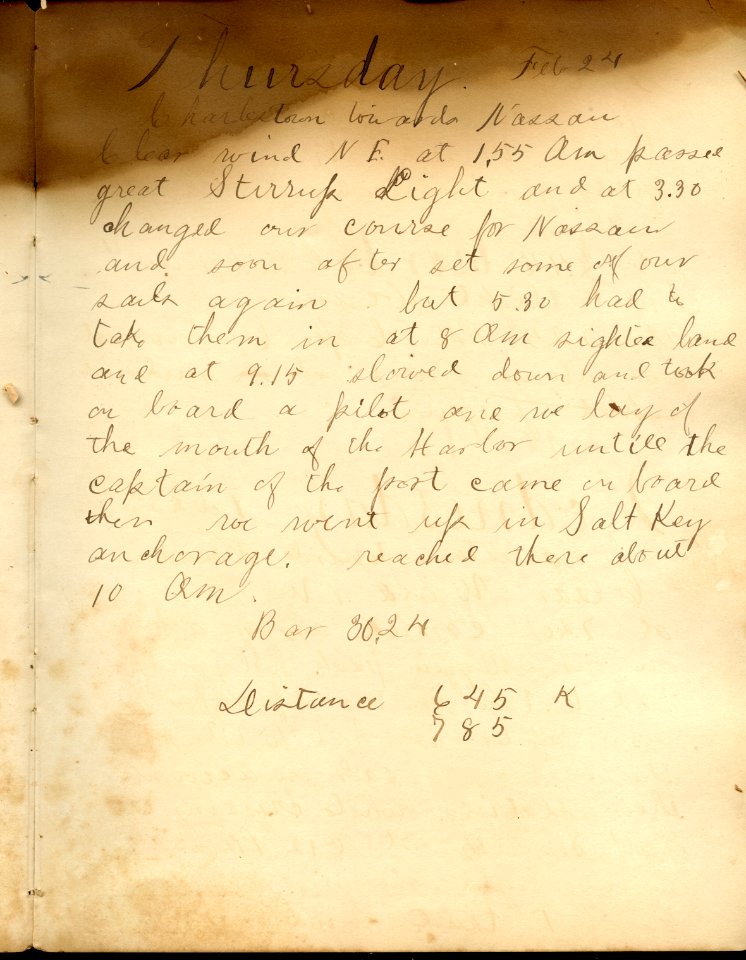 Thursday. Feb 24
Charlestown towards Nassau
Clear wind N E. at 1,55 Am passed
great Stirrup Light and at 3.30
changed our course for Nassau
and soon after set some of our
sails again but 5.30 had to
take them in at 8 Am sighted land
and at 9.15 slowed down and took
on board a pilot and we lay of
the mouth of the Harbor untill the
captain of the port came on board
then we went up in Salt Key
anchorage. reached there about
10 Am.
Bar 30,24
Distance 645 K
785